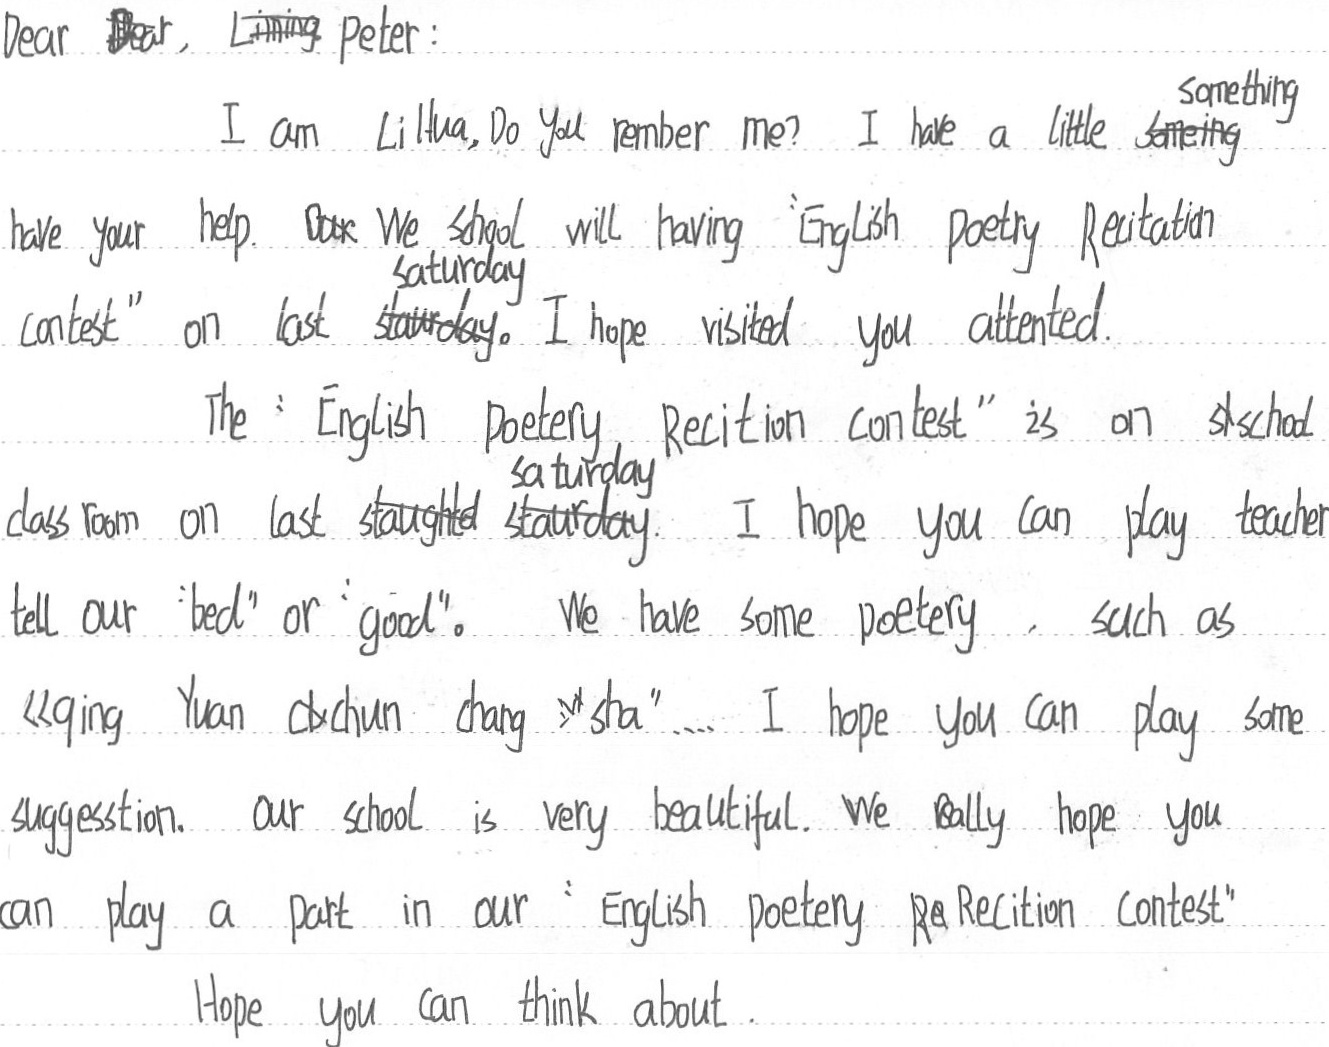 Dear Peter:
I am LiHua, Do you rember me? I have a little something
have your help. We school will having "English Poetry Recitation
contest" on last saturday. I hope visited you attented.
The "English Poetery Recition contest" is on school
class room on last saturday. I hope you can play teacher
tell our "bed" or "good". We have some poetery, such as
《qing Yuan chun chang sha".... I hope you can play some
suggesstion. our school is very beautiful. We really hope you
can play a part in our "English poetery Recition contest"
Hope you can think about.